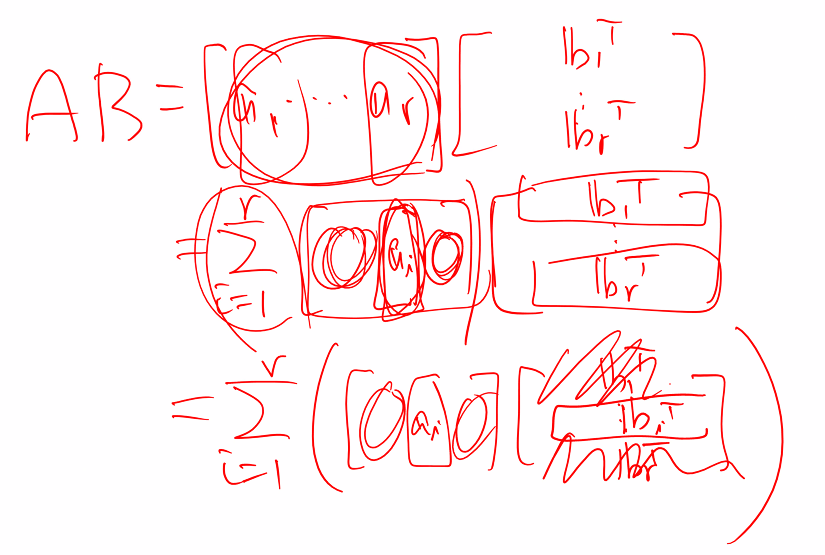 AB = [a₁ ⋯ aᵣ] [b₁ᵀ ⋮ bᵣᵀ]
= (∑ᵢ₌₁ʳ [0 aᵢ 0]) [b₁ᵀ ⋮ bᵣᵀ]
= ∑ᵢ₌₁ʳ ([0 aᵢ 0] [bᵢᵀ])